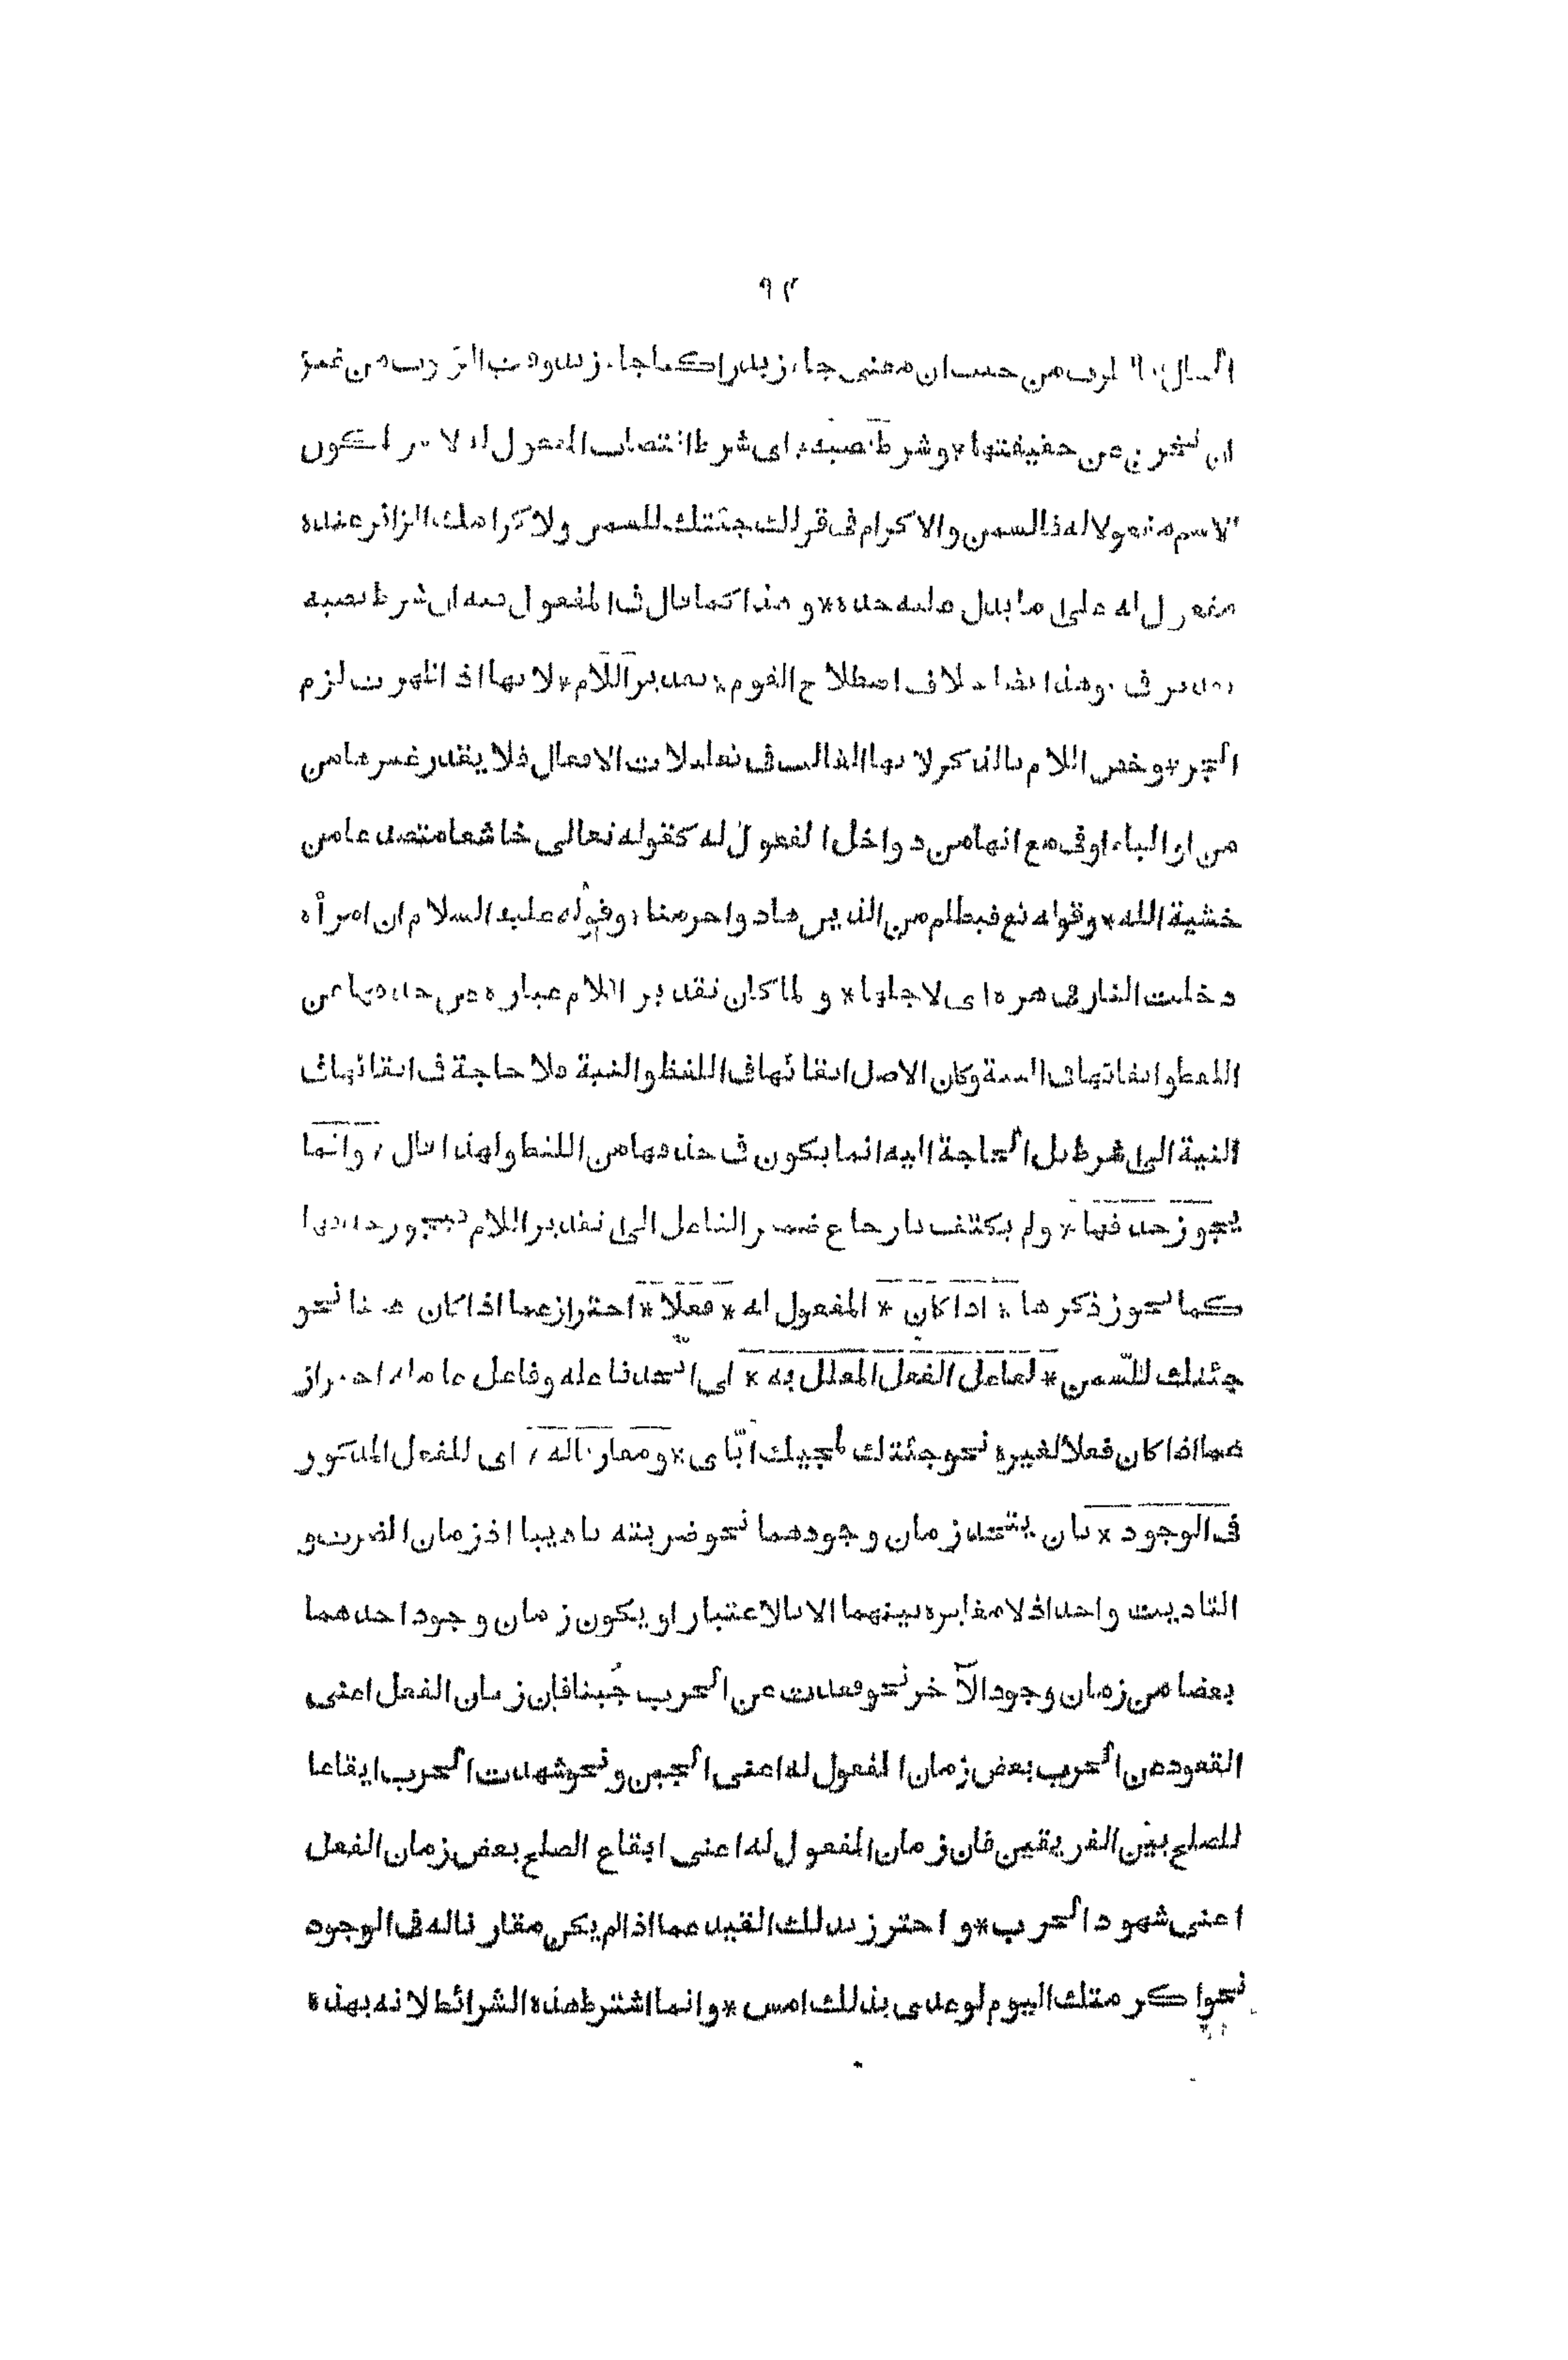 ٩٢
الحال بالظرف من حيث ان معنى جاء زيد راكبا جاء زيد وقت الركوب من غير
ان تخرج عن حقيقتها * وشرط نصبه * اى شرط انتصاب المفعول له لا شرط كون
الاسم مفعولا له فالسمن والاكرام فى قولك جئتك للسمن ولاكرامك الزائر عنده
مفعول له على ما يدل عليه حده * وهذا كما قال فى المفعول فيه ان شرط نصبه
تقدير فى وهذا ايضا خلاف اصطلاح القوم * تقدير اللام * لانها اذا ظهرت لزم
الجر * وخص اللام بالذكر لانها الغالب فى تعليلات الافعال فلا يقدر غيرها من
من او الباء او فى مع انها من دواخل المفعول له كقوله تعالى خاشعا متصدعا من
خشية الله * وقوله تع فبظلم من الذين هادوا حرمنا * وقوله عليه السلام ان امرأة
دخلت النار فى هرة اى لاجلها * ولما كان تقدير اللام عبارة عن حذفها عن
اللفظ وابقائها فى النية وكان الاصل ابقائها فى اللفظ والنية فلا حاجة فى ابقائها فى
النية الى شرط بل الحاجة اليه انما يكون فى حذفها من اللفظ ولهذا قال * وانما
يجوز حذفها * ولم يكتف بارجاع ضمير الفاعل الى تقدير اللام فيجوز حذفها
كما يجوز ذكرها * اذا كان * المفعول له * فعلا * احترازعما اذا كان عينا نحو
جئتك للسمن * لفاعل الفعل المعلل به * اى اتحد فاعله وفاعل عامله احتراز
عما اذا كان فعلا لغيره نحو جئتك لمجيئك اياى * ومقارنا له * اى للفعل المذكور
فى الوجود * بان يتحد زمان وجودهما نحو ضربته تاديبا اذ زمان الضرب و
التاديب واحد اذ لا مغايرة بينهما الا بالاعتبار او يكون زمان وجود احدهما
بعضا من زمان وجود الآخر نحو قعدت عن الحرب جُبنا فان زمان الفعل اعنى
القعود عن الحرب بعض زمان المفعول له اعنى الجبن ونحو شهدت الحرب ايقاعا
للصلح بين الفريقين فان زمان المفعول له اعنى ايقاع الصلح بعض زمان الفعل
اعنى شهود الحرب * واحترز بذلك القيد عما اذا لم يكن مقارنا له فى الوجود
نحو اكرمتك اليوم لوعدى بذلك امس * وانما اشترط هذه الشرائط لانه بهذه